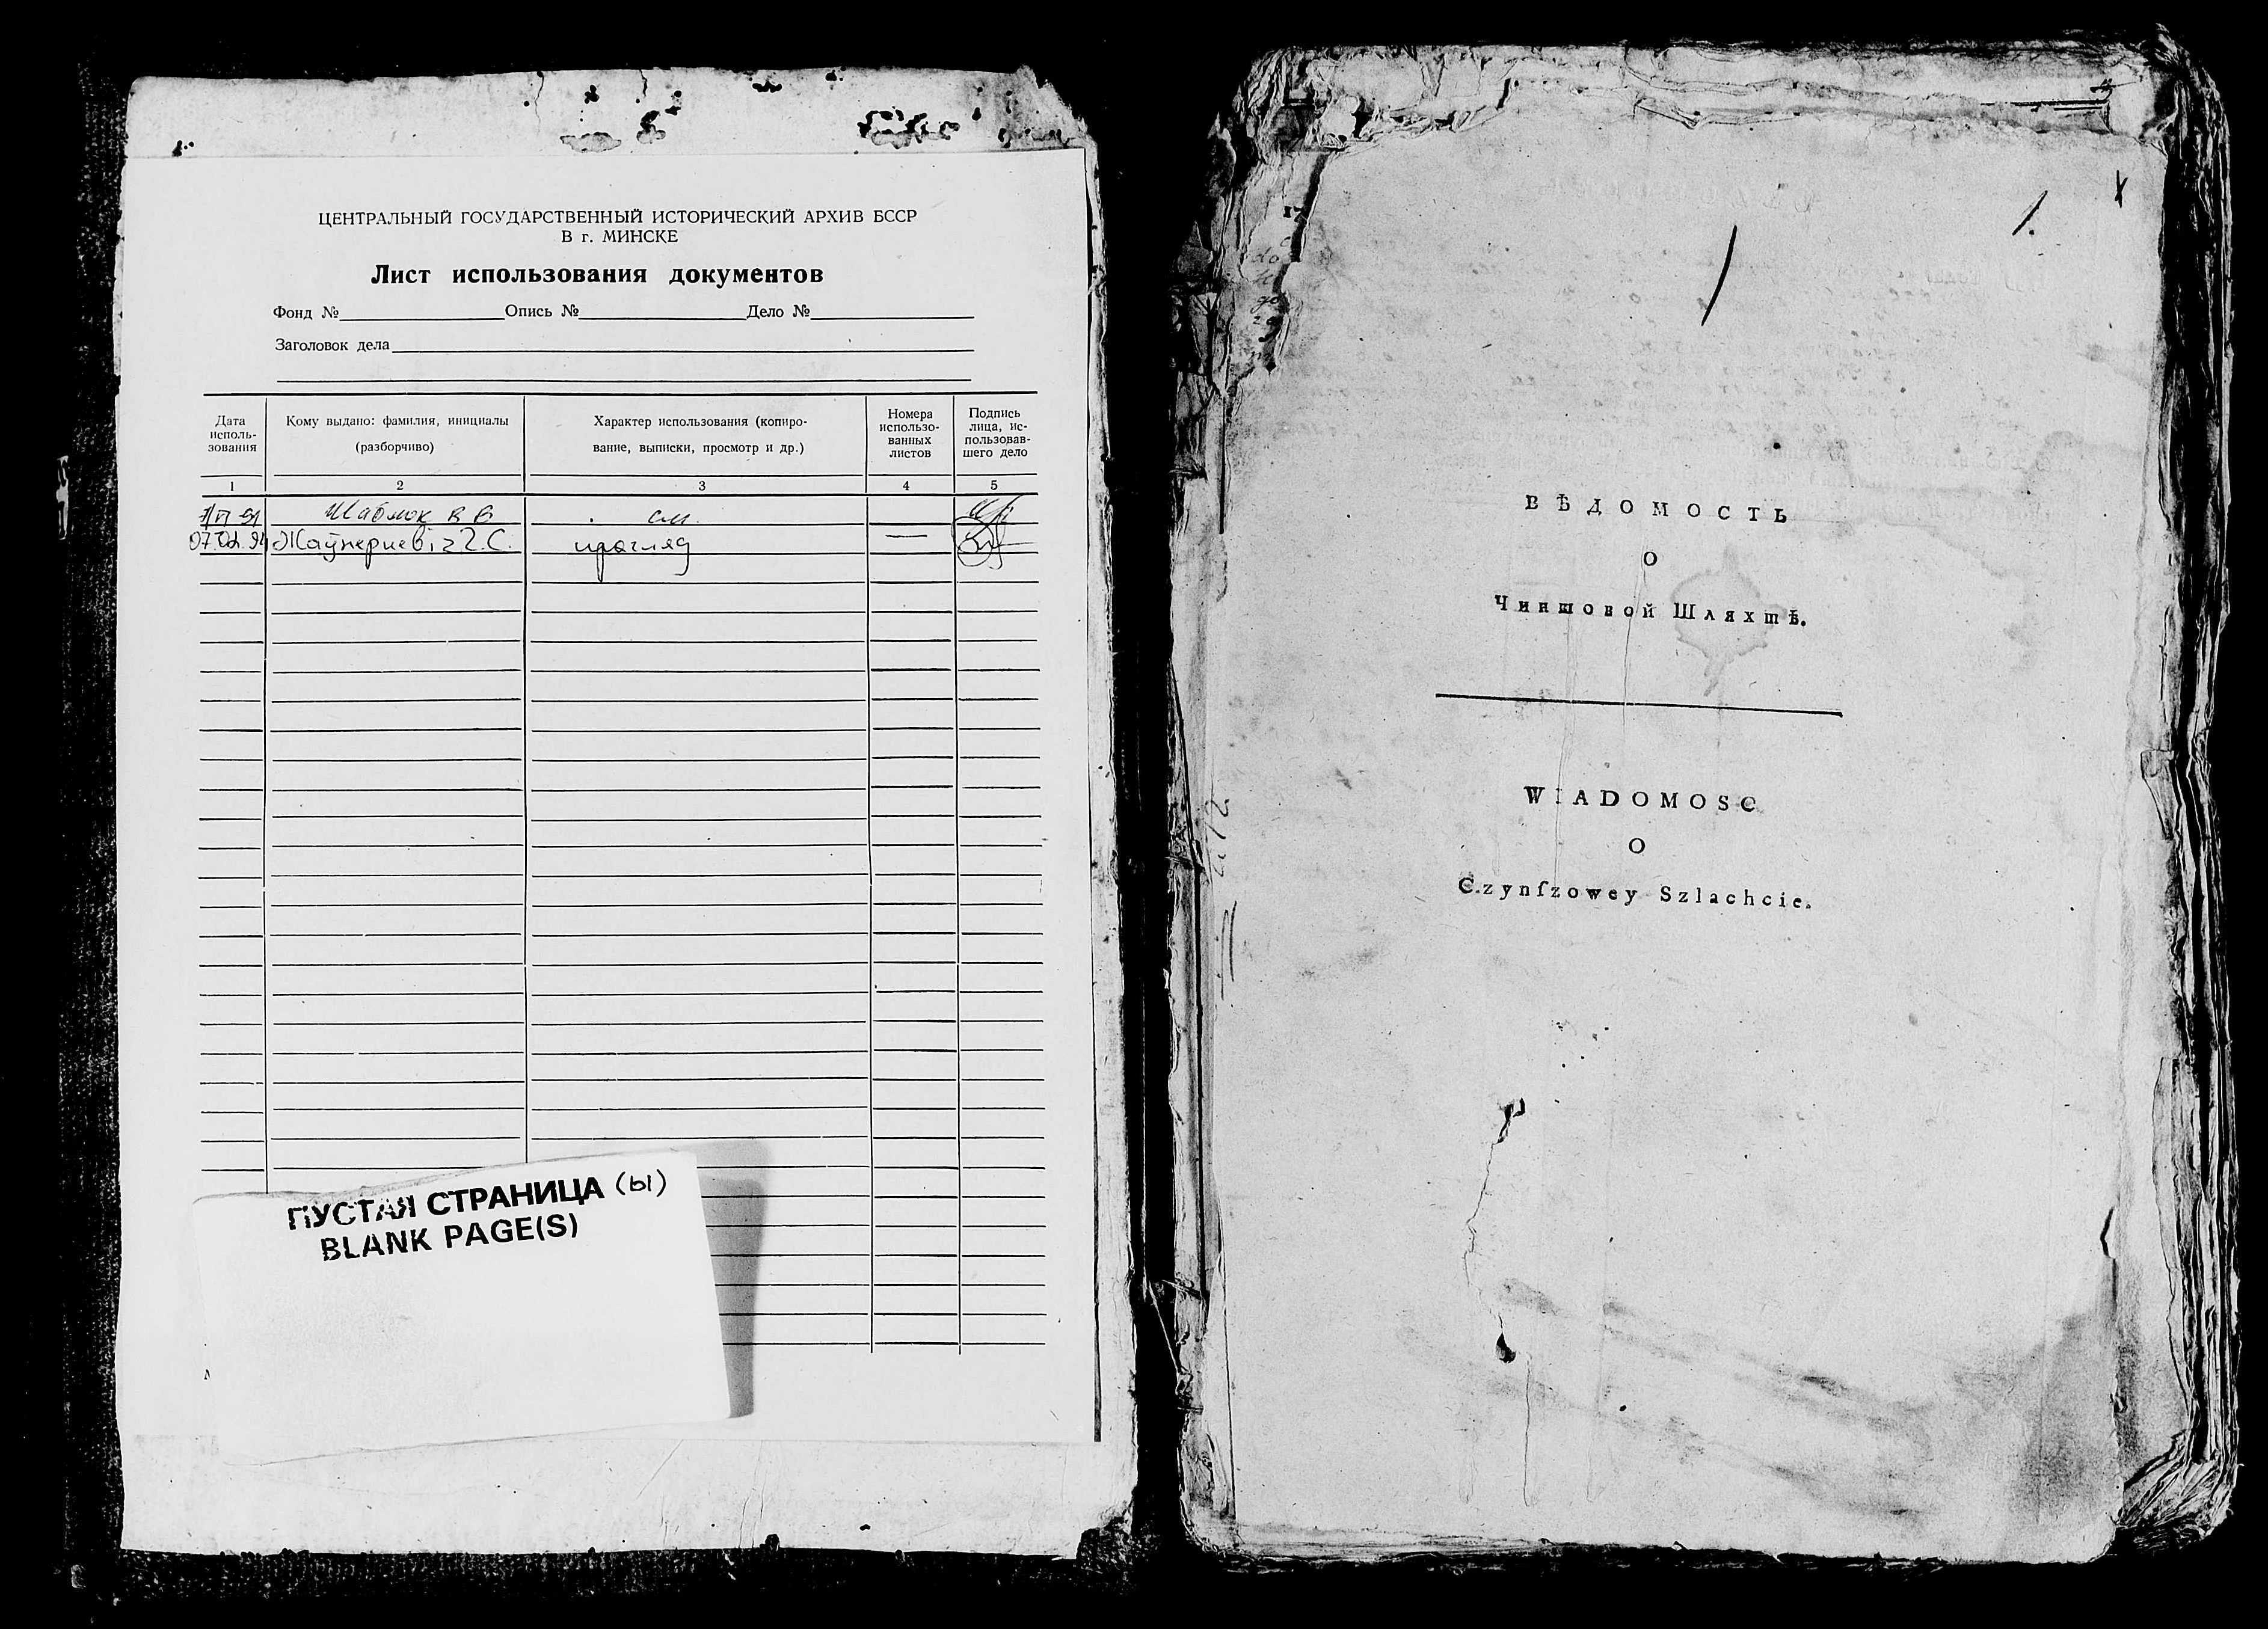 ЦЕНТРАЛЬНЫЙ ГОСУДАРСТВЕННЫЙ ИСТОРИЧЕСКИЙ АРХИВ БССР
В г. МИНСКЕ
Лист использования документов
Фонд № Опись № Дело №
Заголовок дела
Дата исполь-зования
Кому выдано: фамилия, инициалы (разборчиво)
Характер использования (копиро-вание, выписки, просмотр и др.)
Номера использо-ванных листов
Подпись лица, ис-пользовав-шего дело
1 2 3 4 5
91 В В
07.02.94 Жаўнеркевіч С. прагляд —
ПУСТАЯ СТРАНИЦА (Ы)
BLANK PAGE(S)
1.
1
ВѢДОМОСТЬ
О
Чиншовой Шляхтѣ.
WIADOMOSC
O
Czynſzowey Szlachcie.